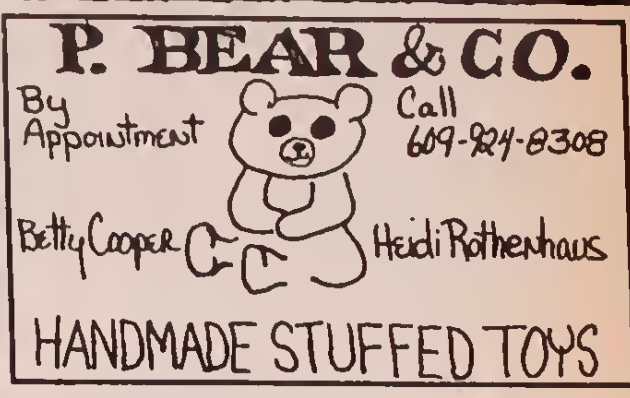 P. BEAR & CO.
By
Appointment
Call
609-924-8308
Betty Cooper
Heidi Rothenhaus
HANDMADE STUFFED TOYS